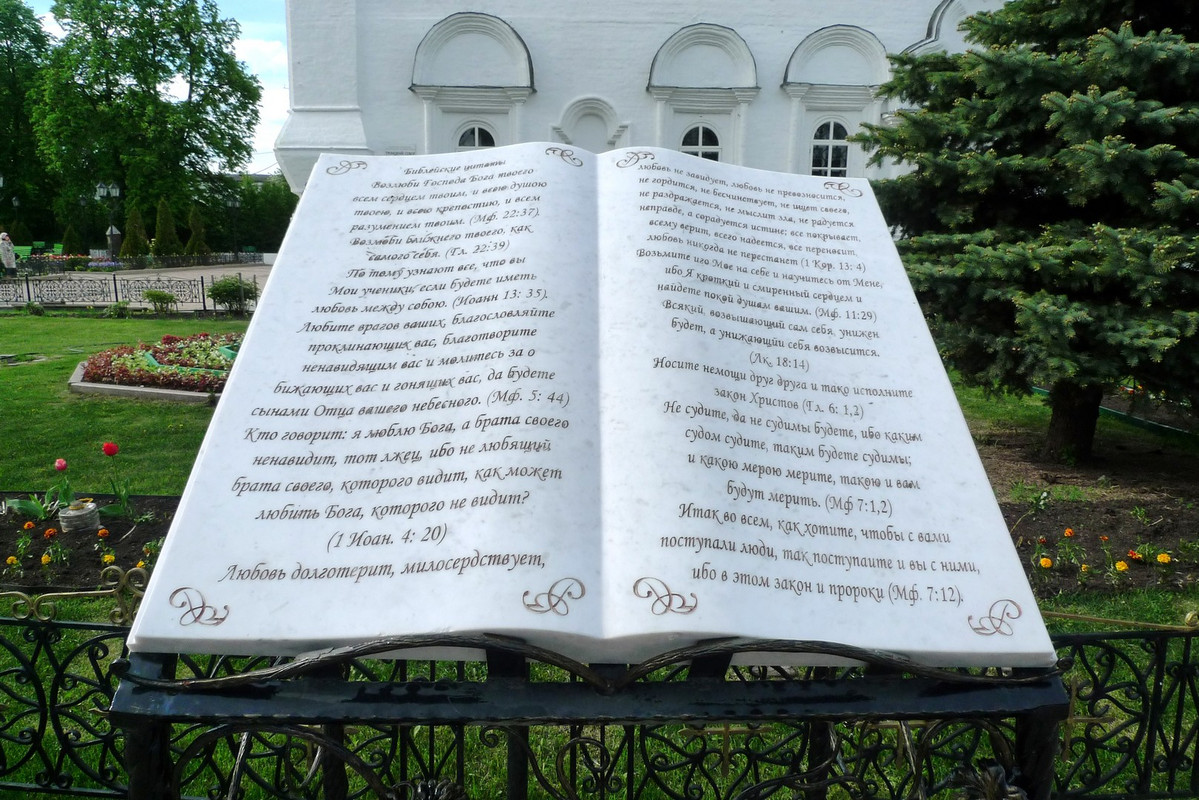 Библейские цитаты
Возлюби Господа Бога твоего
всем сердцем твоим, и всею душою
твоею, и всею крепостию, и всем
разумением твоим. (Мф. 22:37).
Возлюби ближнего твоего, как
самого себя. (Гл. 22:39)
По тому узнают все, что вы
Мои ученики, если будете иметь
любовь между собою. (Иоанн 13: 35).
Любите врагов ваших, благословляйте
проклинающих вас, благотворите
ненавидящим вас и молитесь за о
бижающих вас и гонящих вас, да будете
сынами Отца вашего небесного. (Мф. 5: 44)
Кто говорит: я люблю Бога, а брата своего
ненавидит, тот лжец, ибо не любящий
брата своего, которого видит, как может
любить Бога, которого не видит?
(1 Иоан. 4: 20)
Любовь долготерпит, милосердствует,
любовь не завидует, любовь не превозносится,
не гордится, не бесчинствует, не ищет своего,
не раздражается, не мыслит зла, не радуется
неправде, а сорадуется истине; все покрывает,
всему верит, всего надеется, все переносит.
любовь никогда не перестанет (1 Кор. 13: 4)
Возьмите иго Мое на себе и научитесь от Мене,
ибо Я кроткий и смиренный сердцем и
найдете покой душам вашим. (Мф. 11:29)
Всякий, возвышающий сам себя, унижен
будет, а унижающий себя возвысится.
(Лк. 18:14)
Носите немощи друг друга и тако исполните
закон Христов (Гл. 6: 1,2)
Не судите, да не судимы будете, ибо каким
судом судите, таким будете судимы;
и какою мерою мерите, такою и вам
будут мерить. (Мф 7:1,2)
Итак во всем, как хотите, чтобы с вами
поступали люди, так поступаите и вы с ними,
ибо в этом закон и пророки (Мф. 7:12).